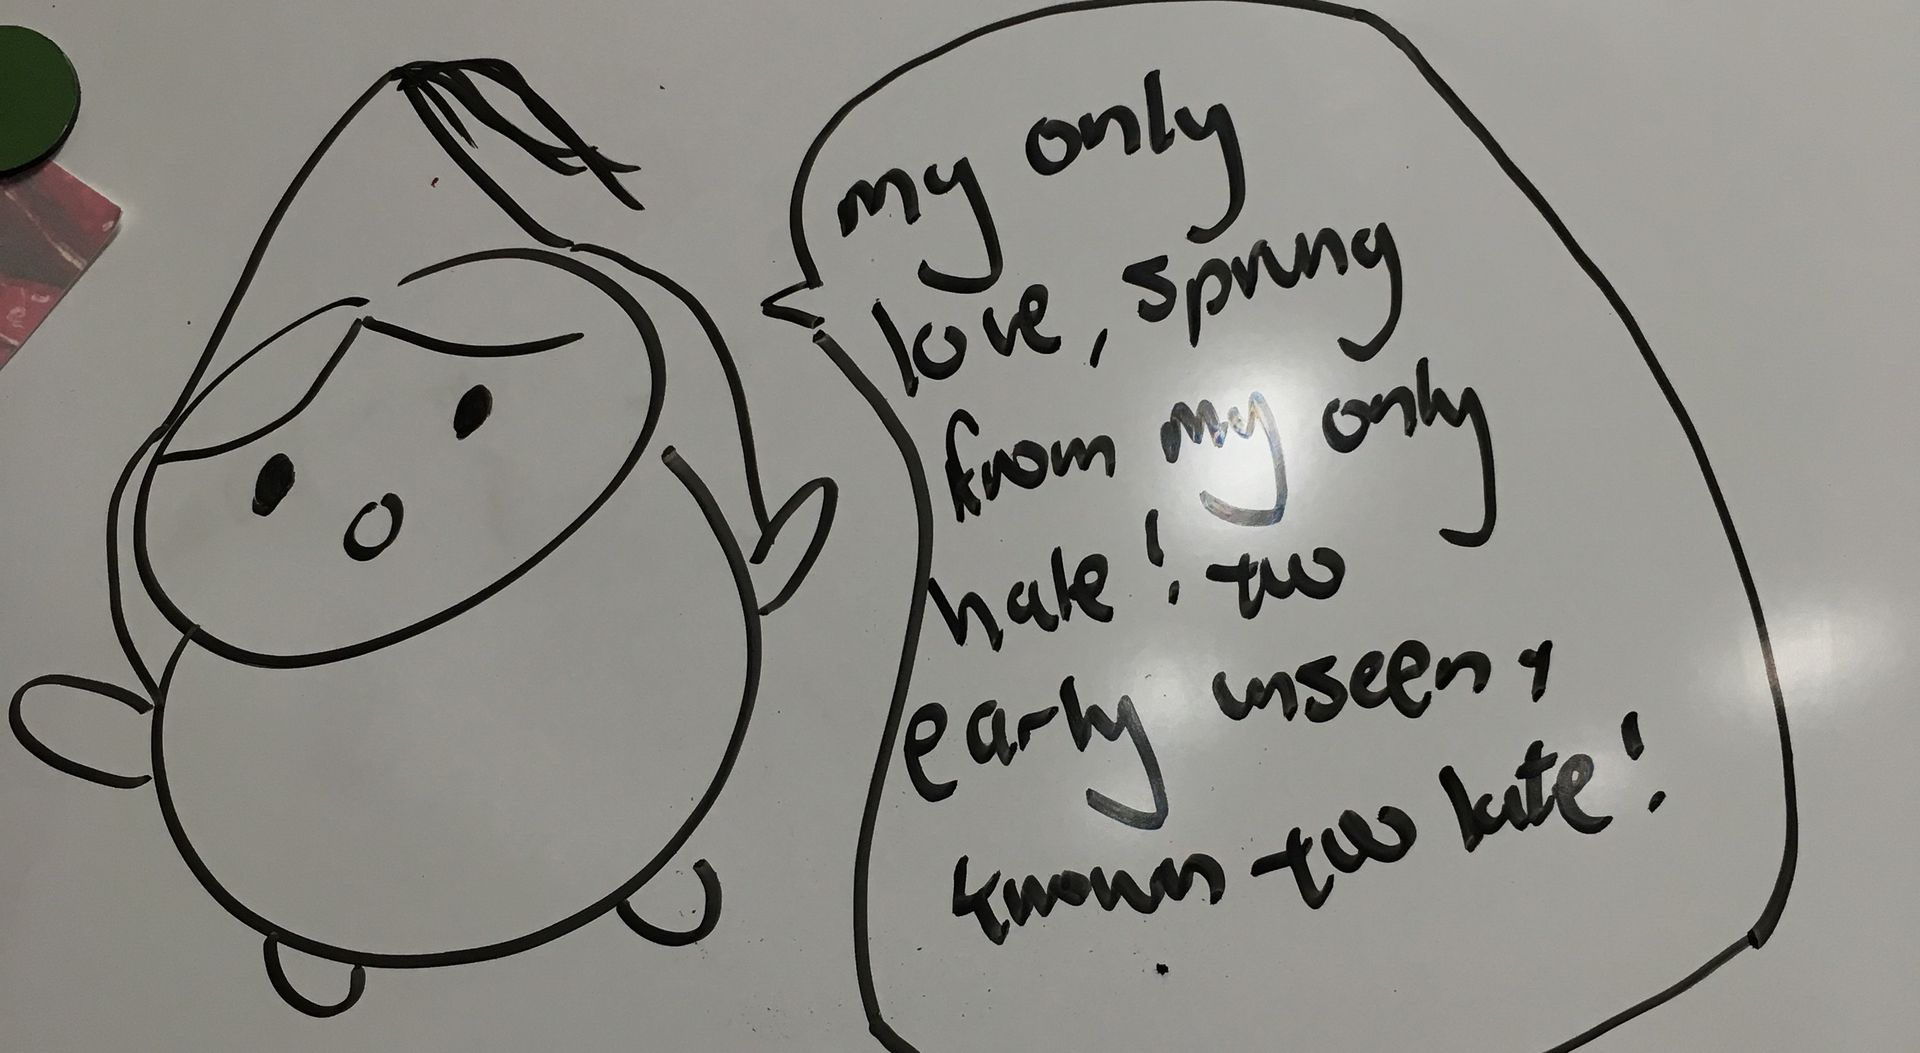 my only
love, sprung
from my only
hate! too
early unseen,
known too late!